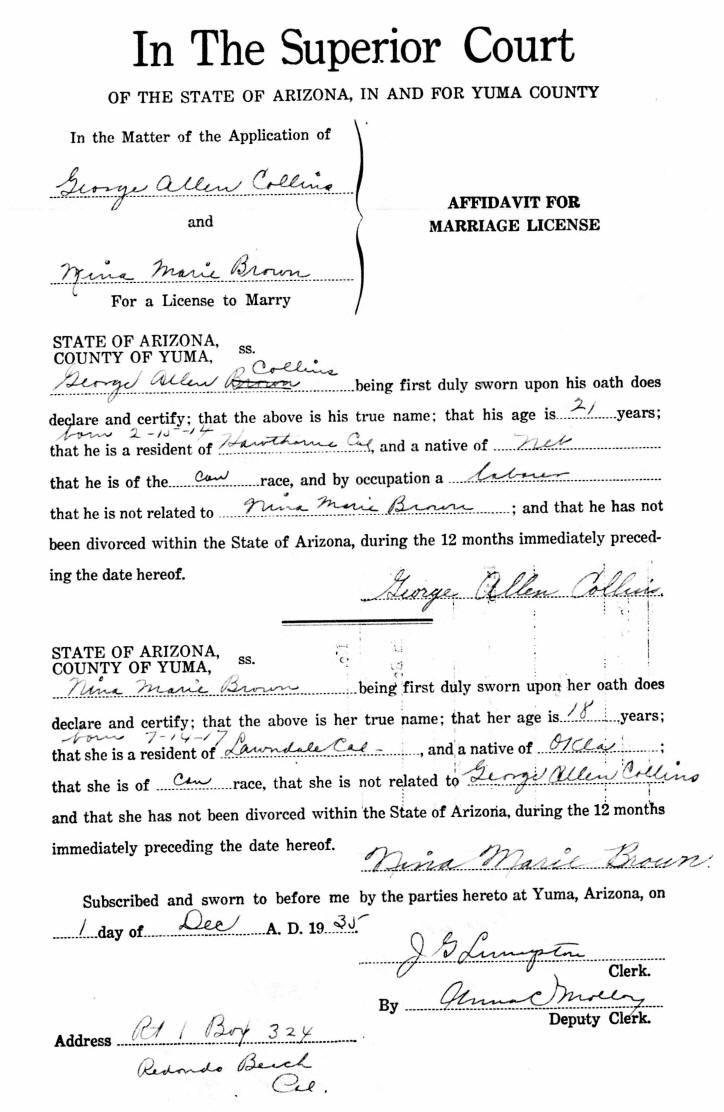 In The Superior Court
OF THE STATE OF ARIZONA, IN AND FOR YUMA COUNTY
In the Matter of the Application of
George Allen Collins
and
Nina Marie Brown
For a License to Marry
AFFIDAVIT FOR
MARRIAGE LICENSE
STATE OF ARIZONA,
COUNTY OF YUMA, ss.
Collins
George Allen Brown being first duly sworn upon his oath does
declare and certify; that the above is his true name; that his age is 21 years;
born 2-15-14
that he is a resident of Hawthorne Cal, and a native of Neb
that he is of the Cau race, and by occupation a laborer
that he is not related to Nina Marie Brown; and that he has not
been divorced within the State of Arizona, during the 12 months immediately preced-
ing the date hereof.
George Allen Collins.
STATE OF ARIZONA,
COUNTY OF YUMA, ss.
Nina Marie Brown being first duly sworn upon her oath does
declare and certify; that the above is her true name; that her age is 18 years;
born 7-14-17
that she is a resident of Lawndale Cal-, and a native of Okla;
that she is of Cau race, that she is not related to George Allen Collins
and that she has not been divorced within the State of Arizona, during the 12 months
immediately preceding the date hereof.
Nina Marie Brown.
Subscribed and sworn to before me by the parties hereto at Yuma, Arizona, on
1 day of Dec A. D. 1935
J G Livingston
Clerk.
By Anna C Molloy
Deputy Clerk.
Address Rt 1 Box 324
Redondo Beach
Cal.